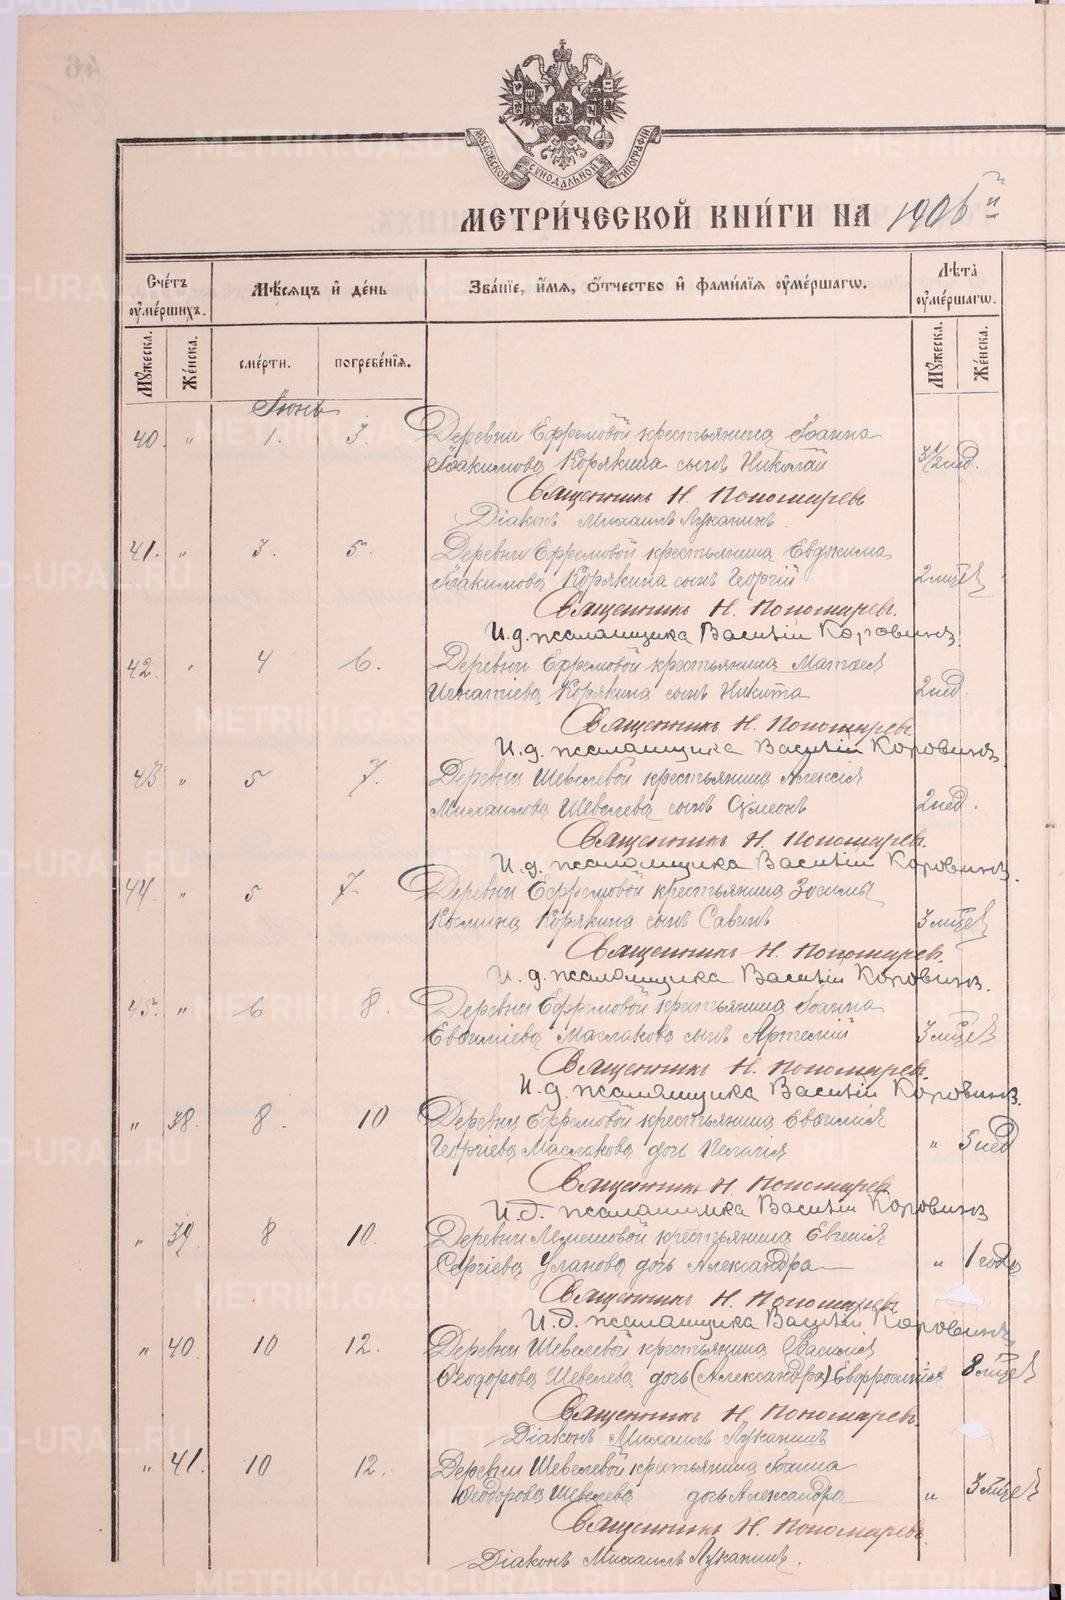 МОСКОВСКОЙ СѴНОДАЛЬНОЙ ТИПОГРАФІИ
МЕТРИ́ЧЕСКОЙ КНИ́ГИ НА 1906 й
Сче́тъ оуме́ршихъ.
Мѣ́сяцъ и день
Зва́нїе, и́мя, о́тчество и фами́лїя оуме́ршагѡ.
Лѣта̀ оуме́ршагѡ.
Му́жеска.
Же́нска.
сме́рти.
погребе́нїя.
Му́жеска.
Же́нска.
Іюнь
40. " 1. 3. Деревни Ефремовой крестьянина Іоанна
Іоакимова Корякина сынъ Николай 3 1/2 нед.
Священникъ Н. Пономаревъ
Діаконъ Михаилъ Луканинъ.
41. " 3. 5. Деревни Ефремовой крестьянина Евдокима
Іоакимова Корякина сынъ Георгій 2 мѣсяц.
Священникъ Н. Пономаревъ.
И. д. псаломщика Василій Коровинъ.
42. " 4 6. Деревни Ефремовой крестьянина Матѳея
Игнатіева Корякина сынъ Никита 2 нед.
Священникъ Н. Пономаревъ.
И. д. псаломщика Василій Коровинъ.
43 " 5 7. Деревни Шевелевой крестьянина Алексія
Михаилова Шевелева сынъ Сѵмеонъ 2 нед.
Священникъ Н. Пономаревъ.
И. д. псаломщика Василій Коровинъ.
44. " 5 7. Деревни Ефремовой крестьянина Зосимы
Космина Корякина сынъ Савинъ 3 мѣсяц.
Священникъ Н. Пономаревъ.
И. д. псаломщика Василій Коровинъ.
45. " 6 8. Деревни Ефремовой крестьянина Іоанна
Евѳиміева Маслакова сынъ Артемій 3 мѣсяц.
Священникъ Н. Пономаревъ.
И. д. псаломщика Василій Коровинъ.
" 38. 8. 10 Деревни Ефремовой крестьянина Евѳимія
Георгіева Маслакова дочь Пелагія " 5 нед
Священникъ Н. Пономаревъ
И. д. псаломщика Василій Коровинъ
" 39. 8 10. Деревни крестьянина Евгенія
Сергіева Уланова дочь Александра " 1 года
Священникъ Н. Пономаревъ
И. д. псаломщика Василій Коровинъ.
" 40. 10 12. Деревни Шевелевой крестьянина Василія
Ѳеодорова Шевелева дочь (Александра) Евфросинія 8 мѣсяц.
Священникъ Н. Пономаревъ.
Діаконъ Михаилъ Луканинъ
" 41. 10 12. Деревни Шевелевой крестьянина Іоанна
Ѳеодорова Шевелева дочь Александра " 3 мѣсяц.
Священникъ Н. Пономаревъ.
Діаконъ Михаилъ Луканинъ.
METRIKI.GASO-URAL.RU